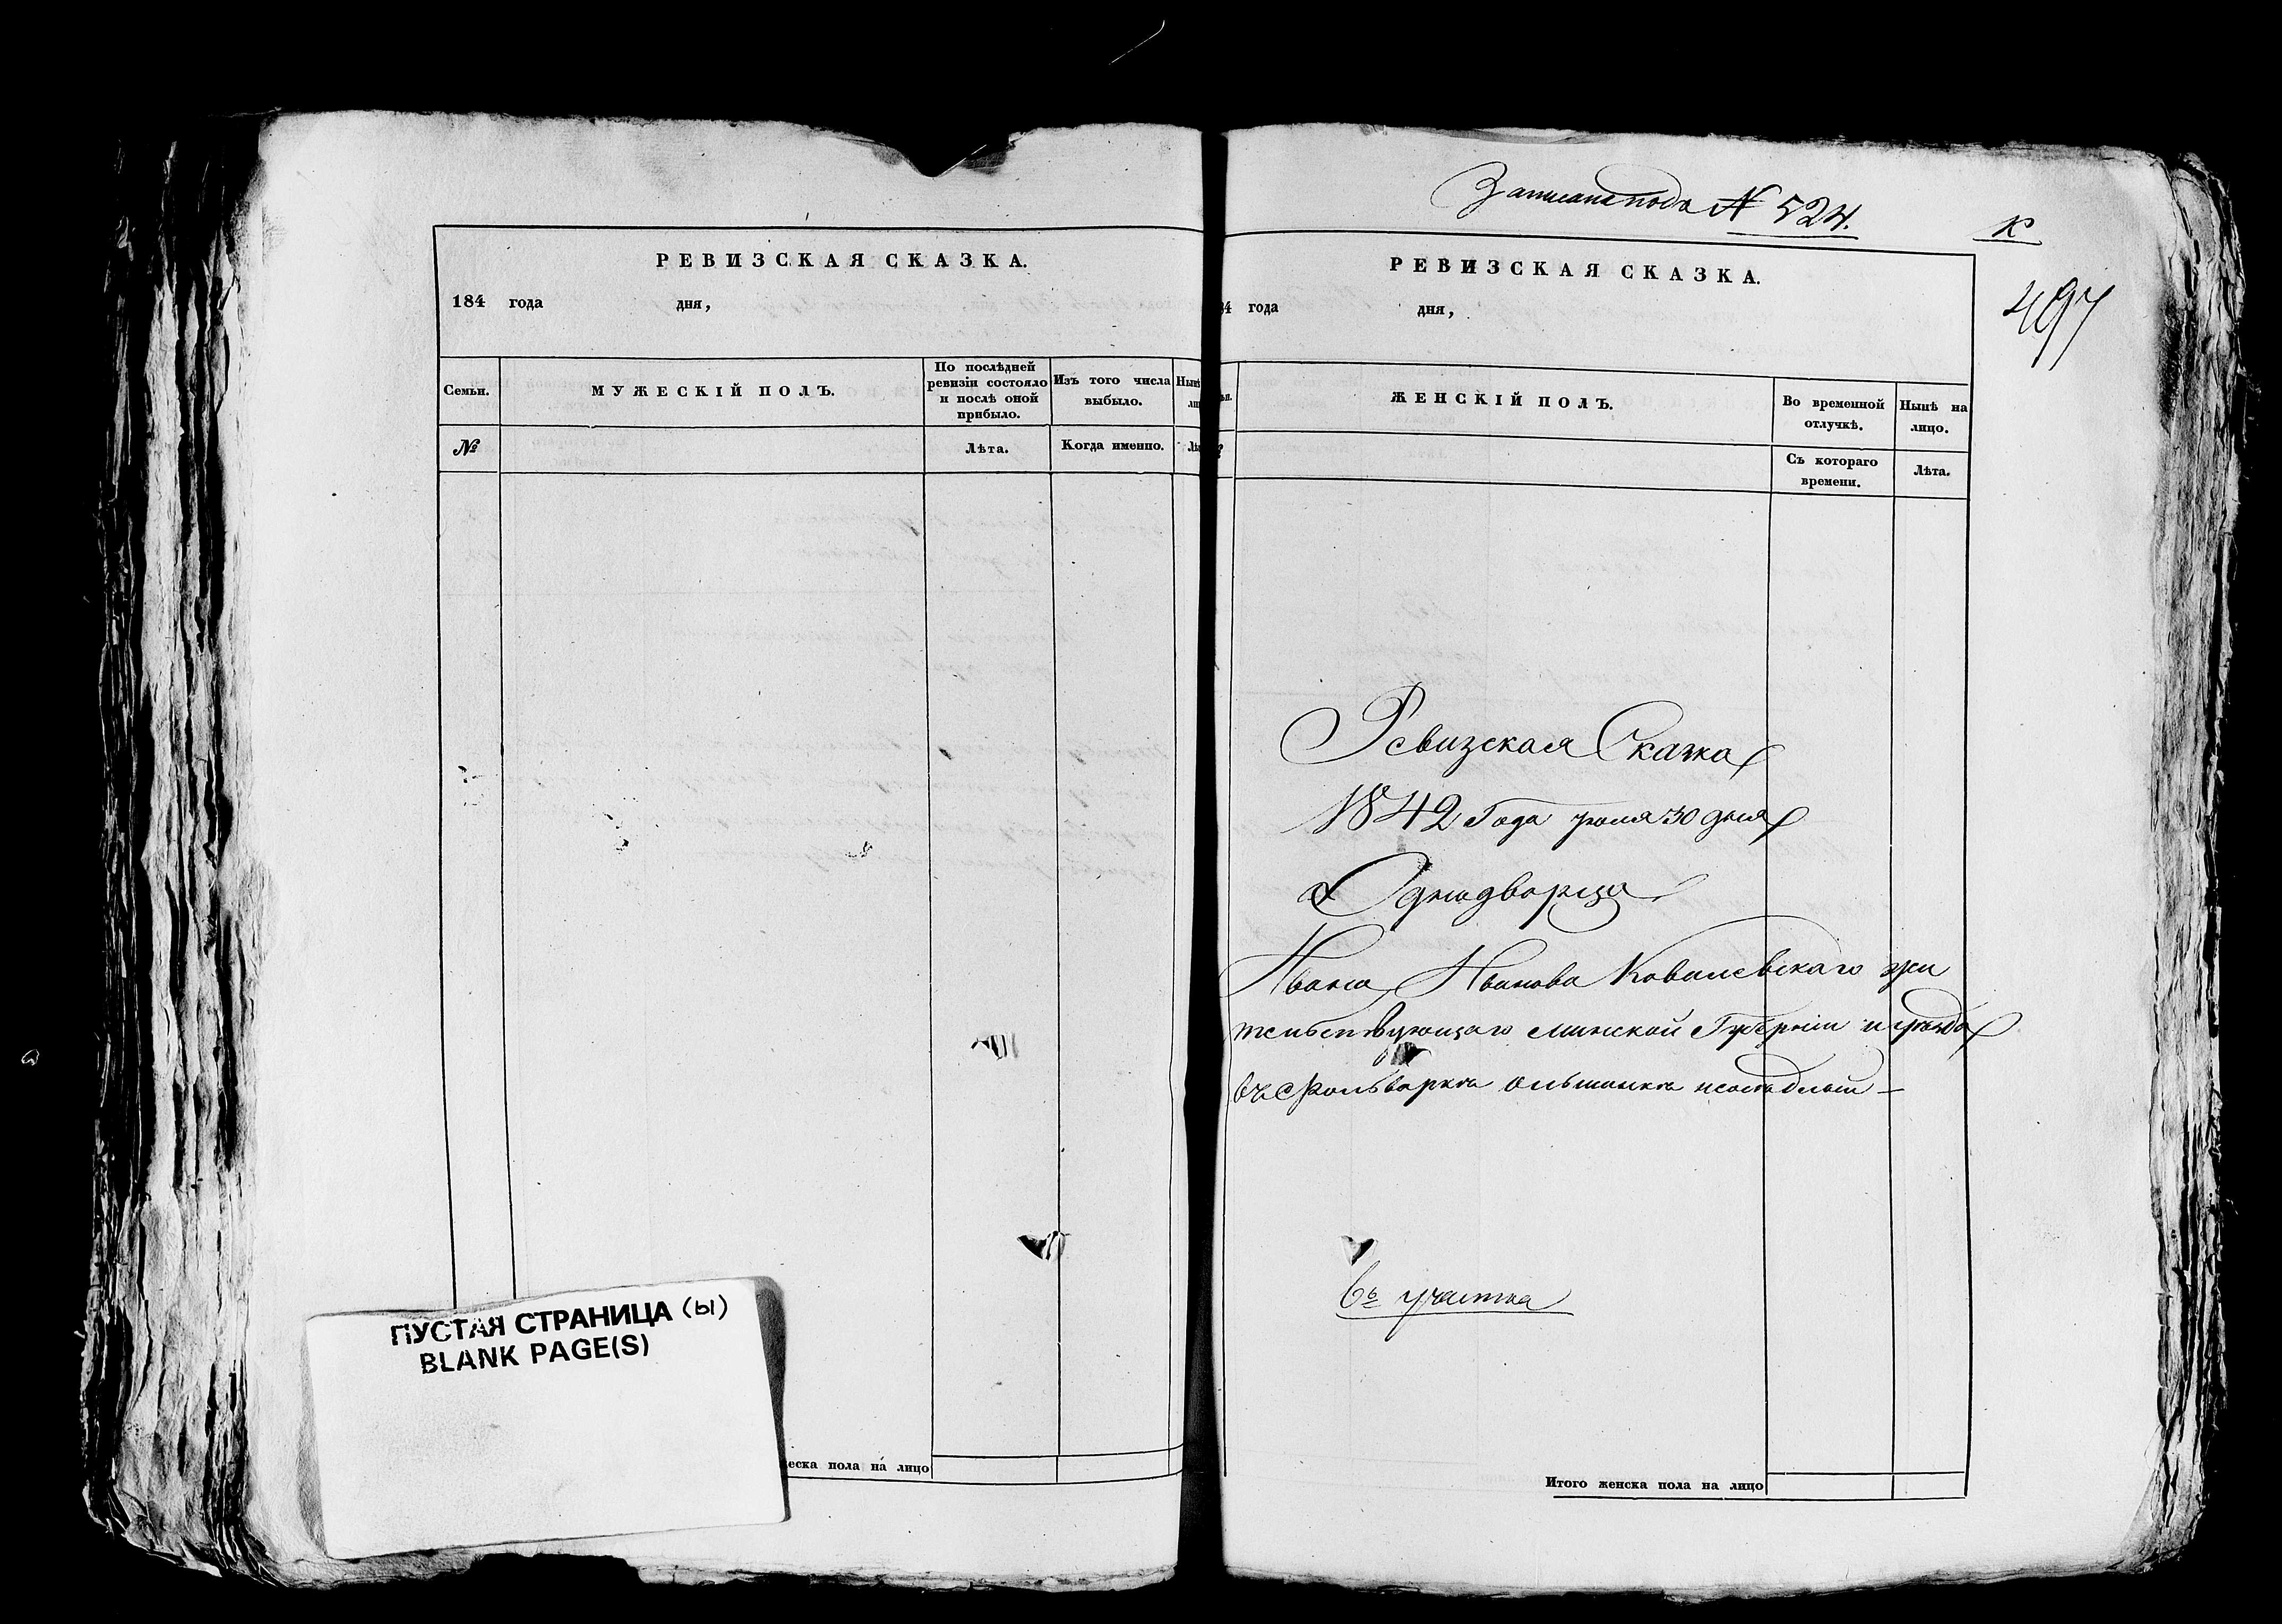 РЕВИЗСКАЯ СКАЗКА.
184 года дня,
Семьи.
МУЖЕСКІЙ ПОЛЪ.
По послѣдней
ревизіи состояло
и послѣ оной
прибыло.
Изъ того числа
выбыло.
№
Лѣта.
Когда именно.
ПУСТАЯ СТРАНИЦА (ы)
BLANK PAGE(S)
еска пола на лицо
Записана подъ № 524.
К
497
РЕВИЗСКАЯ СКАЗКА.
84 года дня,
ЖЕНСКІЙ ПОЛЪ.
Во временной
отлучкѣ.
Нынѣ на
лицо.
Съ котораго
времени.
Лѣта.
Ревизская Сказка
1842 Года июля 30 дня
Однодворца
Ивана Иванова Ковалевскаго жи
тельствующаго минской Губерніи и уѣзда
въ Фольварка
6го участка
Итого женска пола на лицо